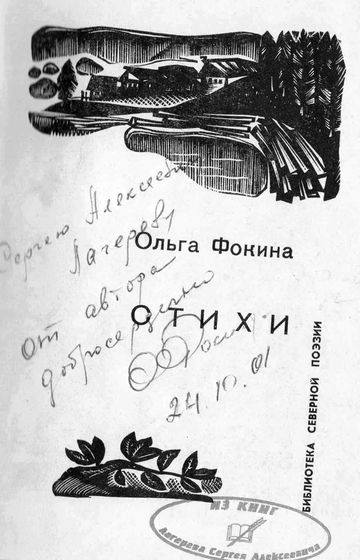 Сергею Алексеевичу
Лагереву
Ольга Фокина
От автора
добросердечно
СТИХИ
24.10.01
БИБЛИОТЕКА СЕВЕРНОЙ ПОЭЗИИ
ИЗ КНИГ
Лагерева Сергея Алексеевича